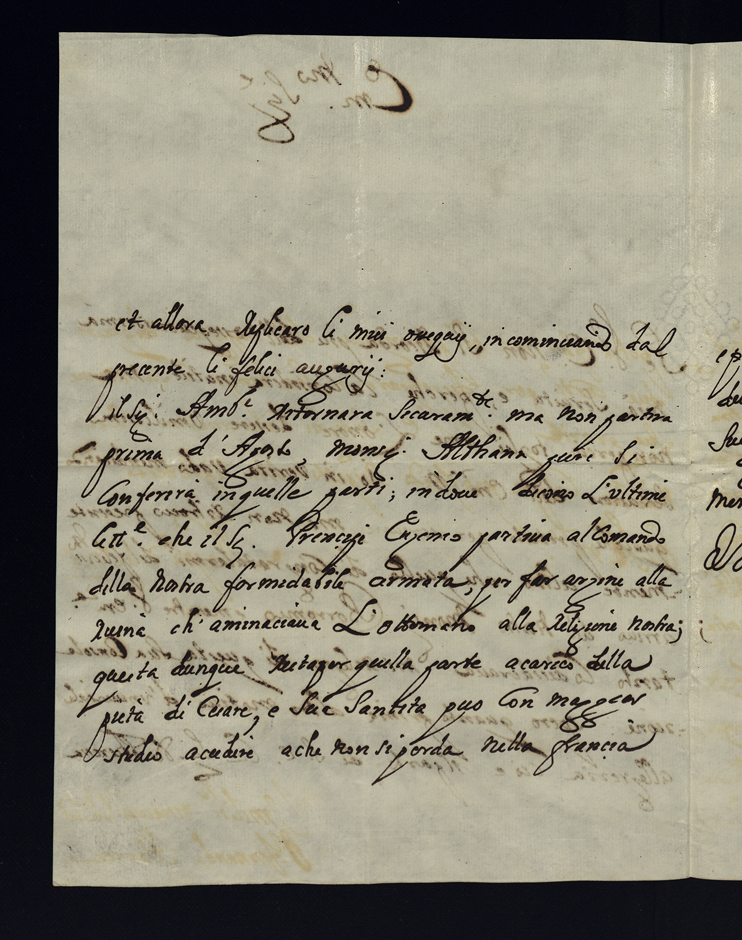 et allora replicarò li miei ossequij, incominciando dal
presente li felici augurij:
Il Sig.r Amb.e ritornarà sicuram.te ma non partirà
prima d'Agosto, Monsig. Althana pure si
Conferirà in quelle parti; in dove dicono L'ultime
lett.e che il Sig. Prencipe Eugenio partiva al Comando
della nostra formedabile armata, per far argine alla
Ruina ch'aminaciaua L'ottomano alla Religione nostra;
questa dunque resta per quella parte a carico della
pietà di Cesare, e Sua Santità può Con maggior
studio accudire a che non si perda nella Francia